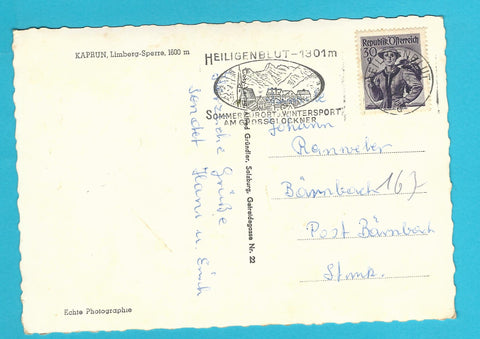 KAPRUN, Limberg-Sperre, 1600 m
HEILIGENBLUT - 1301m
SOMMERKURORT u. WINTERSPORT
AM GROSSGLOCKNER
Republik Österreich
30 g
Herzliche Grüße
sendet Hans u. Erich
Gründler, Salzburg, Getreidegasse Nr. 22
Johann
Bärnbach 167
Post Bärnbach
Stmk.
Echte Photographie